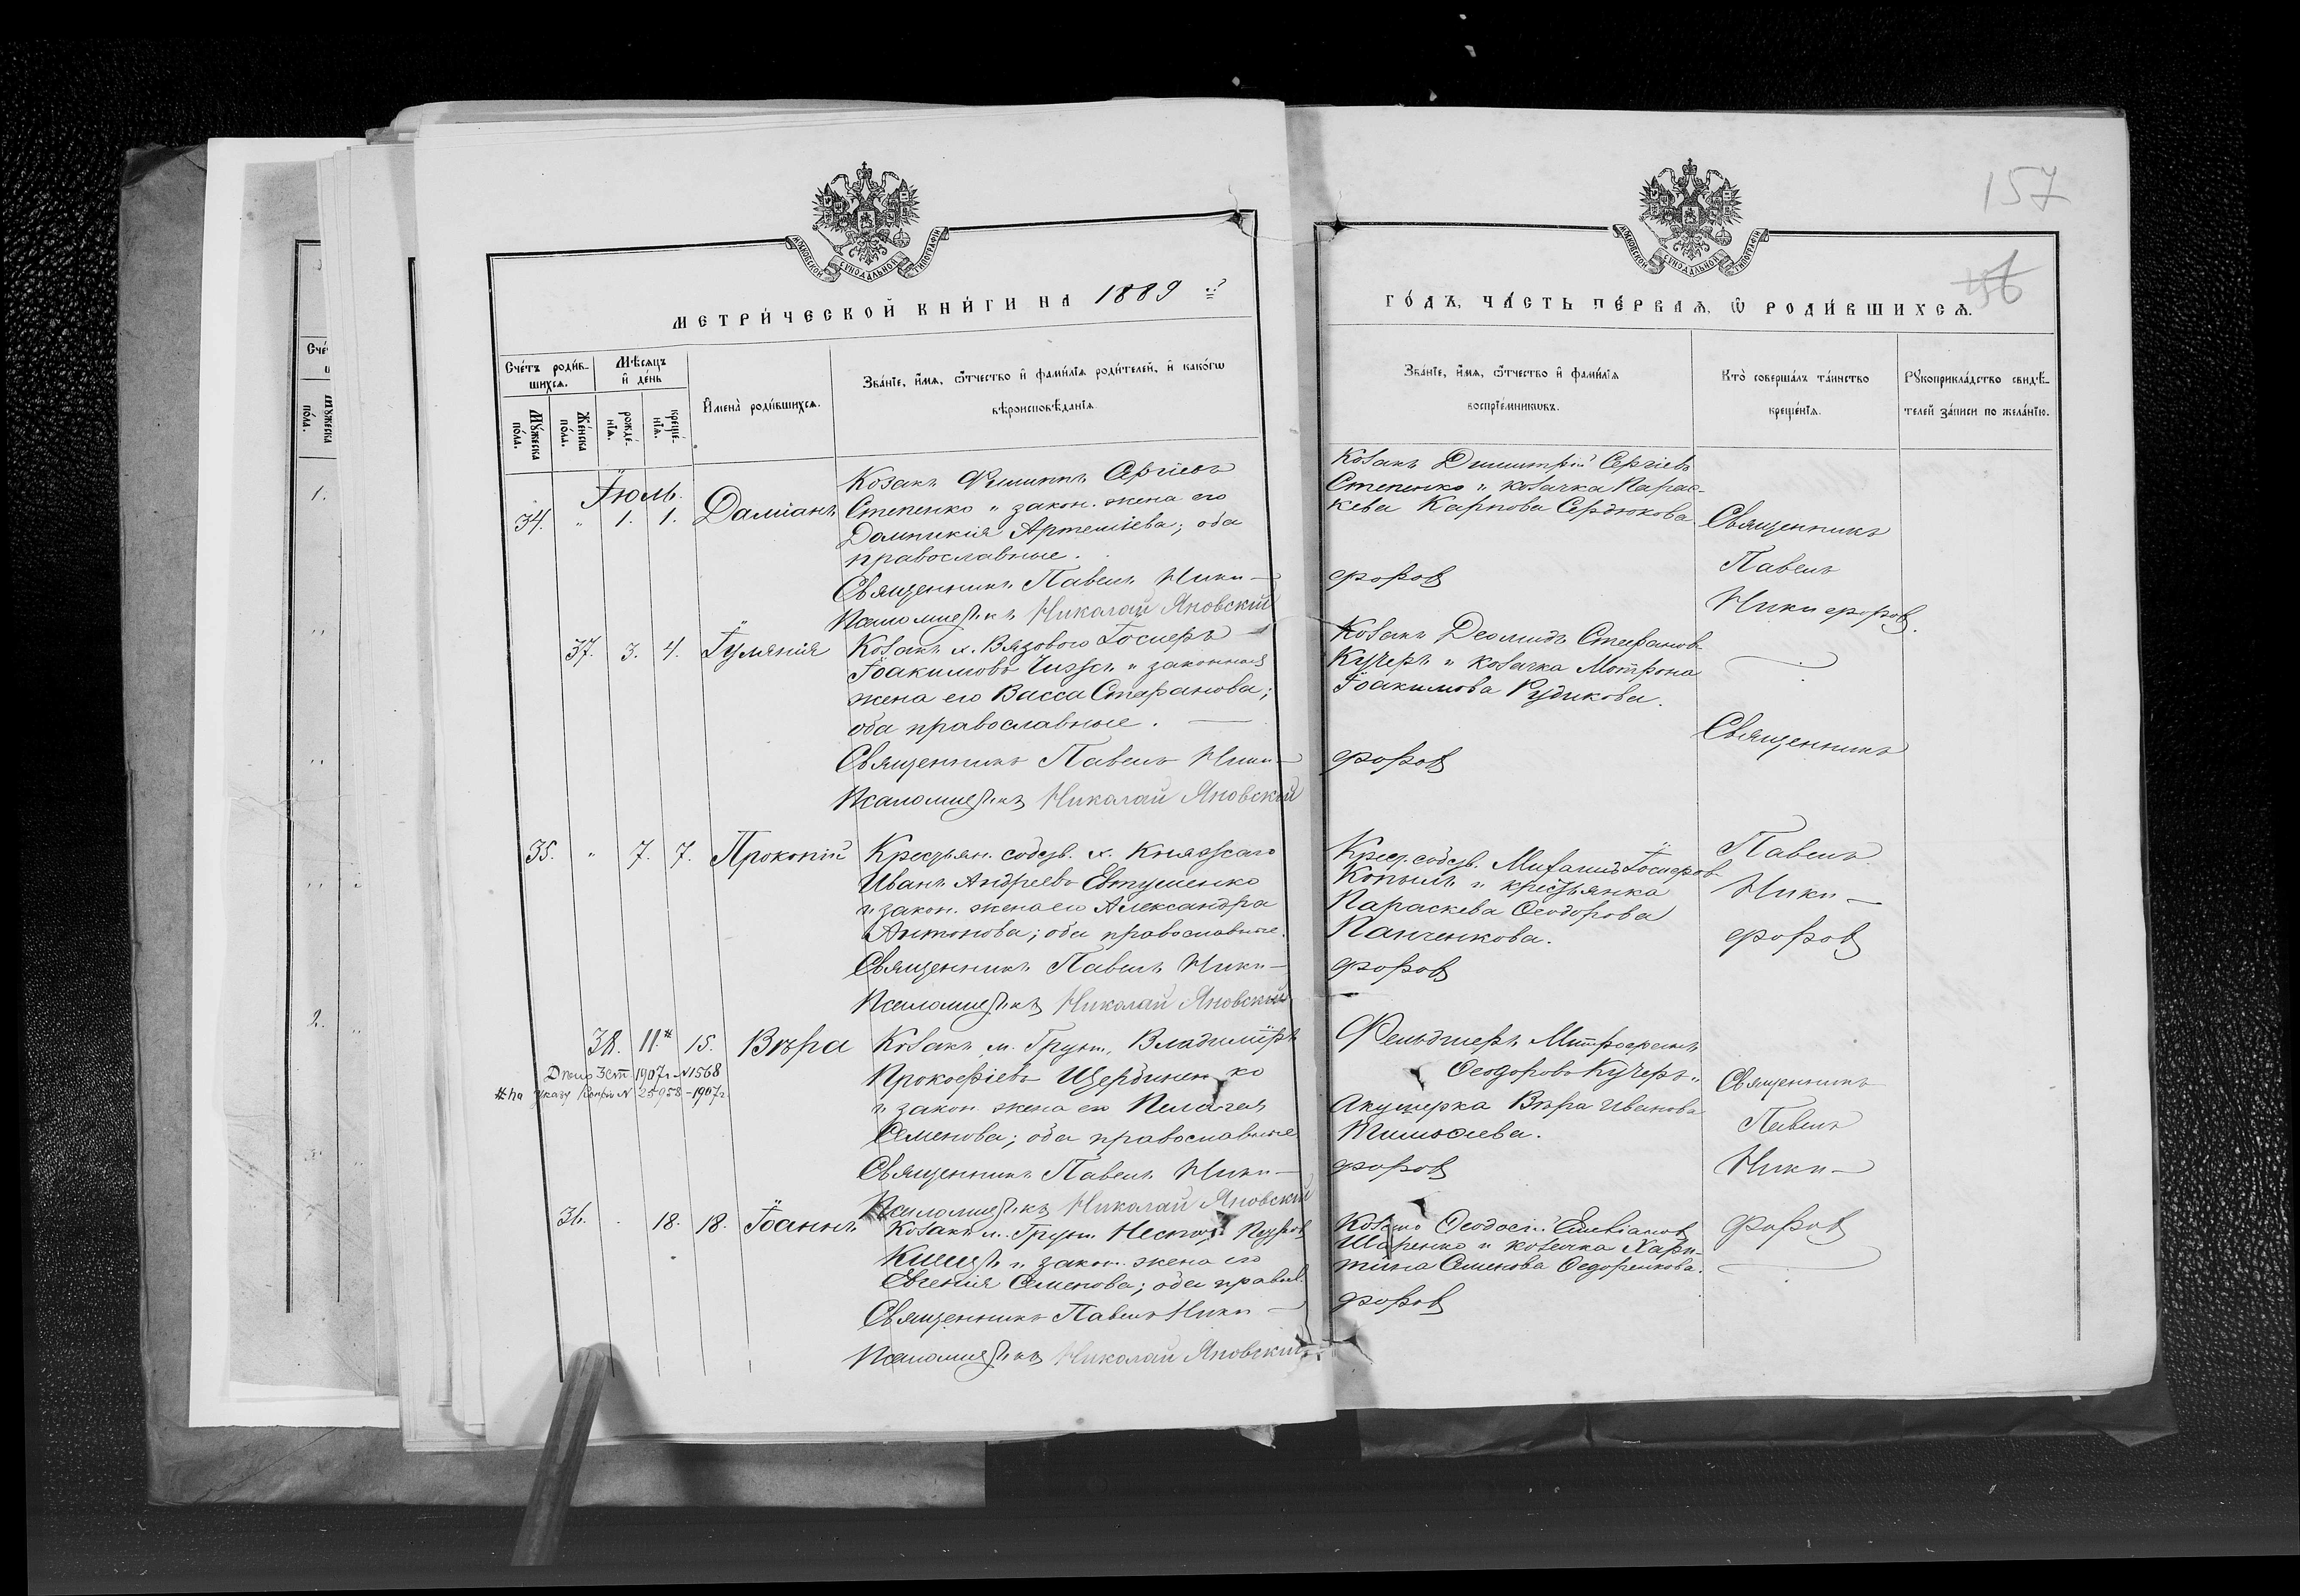 157
156
МЕТРИЧЕСКОЙ КНИГИ НА 1889 й
ГОДЪ, ЧАСТЬ ПЕРВАЯ, Ѡ РОДИВШИХСЯ.
Счетъ родив-
шихся.
Мѣсяцъ
и день
Мужеска
пола.
Женска
пола.
рожде-
нія.
креще-
нія.
Имена родившихся.
Званіе, имя, отчество и фамилія родителей, и какогѡ
вѣроисповѣданія.
Званіе, имя, отчество и фамилія
воспріемниковъ.
Кто совершалъ таинство
крещенія.
Рукоприкладство свидѣ-
телей записи по желанію.
Іюль.
34. " 1. 1. Даміанъ
Козакъ Филиппъ Сергіевъ
Степенко и закон. жена его
Домникія Артеміева; оба
православные.
Священникъ Павелъ Ники-
форовъ
Псаломщикъ Николай Яновскій
Козакъ Димитрій Сергіевъ
Степенко и козачка Парас-
кева Карпова Сердюкова
Священникъ
Павелъ
Никифоровъ.
37. 3. 4. Гуманія
Козакъ х. Вязового Іосифъ
Іоакимовъ и законная
жена его Васса Стефанова;
оба православные.
Священникъ Павелъ Ники-
форовъ
Псаломщикъ Николай Яновскій
Козакъ Деомидъ Стефановъ
Кучеръ и козачка Мотрона
Іоакимова Рудикова.
Священникъ
Павелъ
Ники-
форовъ
35. " 7. 7. Прокопій
Крестьян. собств. х. Княжского
Иванъ Андреевъ Евтушенко
и закон. жена его Александра
Антонова; оба православные.
Священникъ Павелъ Ники-
форовъ
Псаломщикъ Николай Яновскій
Крест. собств. Михаилъ Іосифовъ
Копылъ и крестьянка
Параскева Ѳеодорова
Панченкова.
38. 11.* 15. Вѣра
Дѣло 3 ст 1907 г. N 1568
* по Указу Конс. N 25958 - 1907 г.
Козакъ м. Грун. Владиміръ
Прокофіевъ Щербиненко
и закон. жена его Пелагея
Семенова; оба православные
Священникъ Павелъ Ники-
форовъ
Псаломщикъ Николай Яновскій
Фельдшеръ Митрофанъ
Ѳеодоровъ Кучеръ и
Акушерка Вѣра Иванова
Священникъ
Павелъ
Ники-
форовъ
36. 18. 18. Іоаннъ
Козакъ м. Грун. Нестор
и закон. жена его
Евгенія Семенова; оба правос.
Священникъ Павелъ Ники-
форовъ
Псаломщикъ Николай Яновскій
Козакъ Ѳеодосій Емеліановъ
Шаренко и козачка Хари-
тина Семенова Ѳедоренкова.